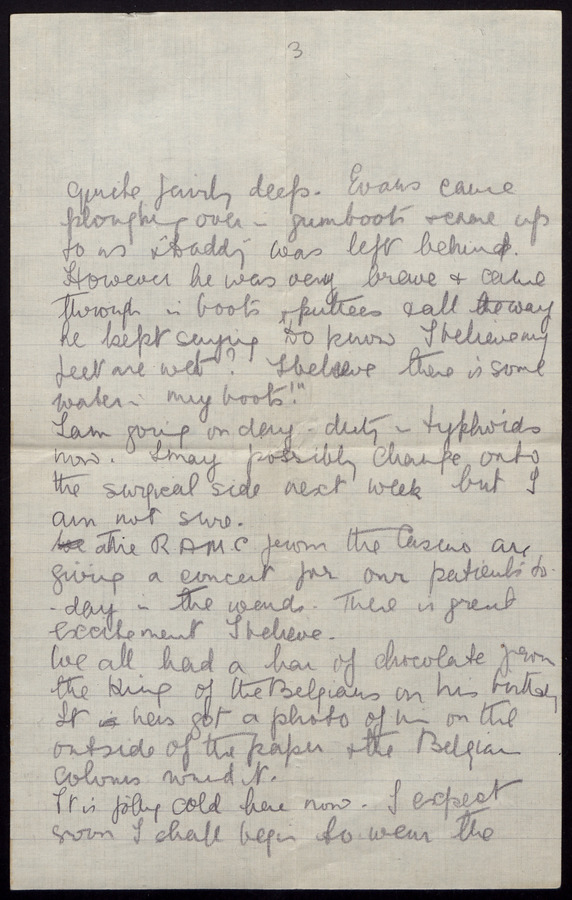 3
quite fairly deep. Evans came
ploughing over in gumboots & came up
to us & Daddy was left behind.
However he was very brave & came
through in boots & puttees & all the way
he kept saying "Do you know I believe my
feet are wet"? "I believe there is some
water in my boots!"
I am going on day-duty in typhoids
now. I may possibly change onto
the surgical side next week but I
am not sure.
The R A M C from the Casino are
giving a concert for our patients to-
-day in the wards. There is great
excitement I believe.
We all had a bar of chocolate from
the King of the Belgians on his birthday
It is has got a photo of him on the
outside of the paper & the Belgian
colours round it.
It is jolly cold here now. I expect
soon I shall begin to wear the